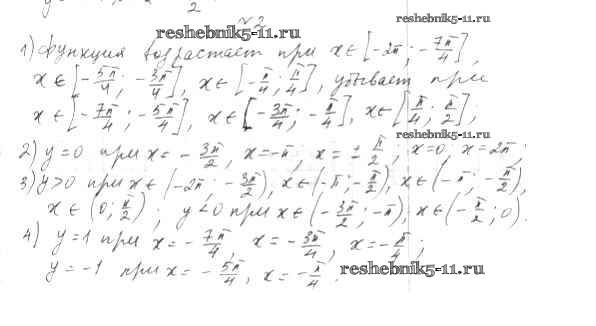 2
№ 2
reshebnik5-11.ru
1) функция возрастает при x∈[-2π; -7π/4],
x∈[-5π/4; -3π/4], x∈[-π/4; π/4], убывает при
x∈[-7π/4; -5π/4], x∈[-3π/4; -π/4], x∈[π/4; π/2];
reshebnik5-11.ru
2) y=0 при x=-3π/2, x=-π, x=±π/2; x=0; x=2π;
3) y>0 при x∈(-2π; -3π/2), x∈(-π; -π/2), x∈(-π; -π/2),
x∈(0; π/2); y<0 при x∈(-3π/2; -π), x∈(-π/2; 0).
4) y=1 при x=-7π/4, x=-3π/4, x=-π/4;
y=-1 при x=-5π/4, x=-π/4.
reshebnik5-11.ru